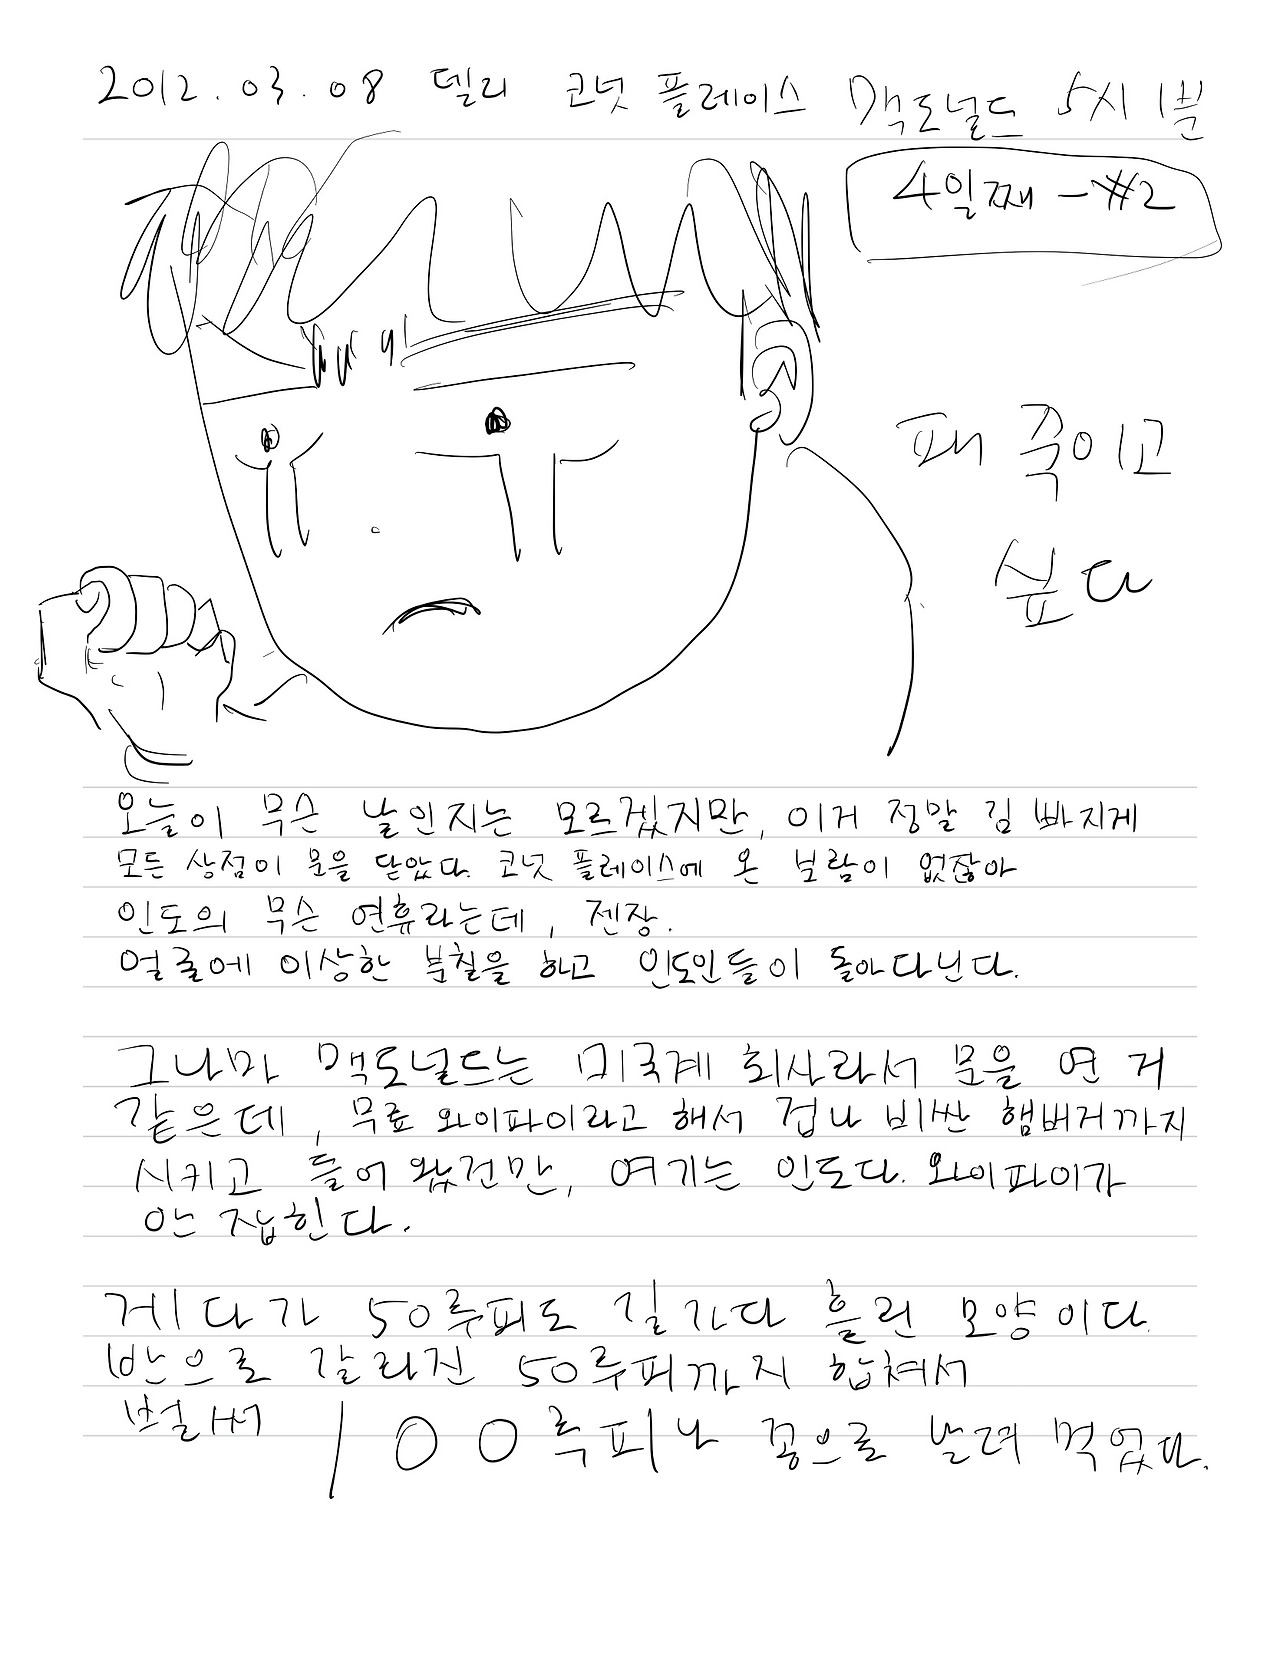 2012.03.08 델리 코넛 플레이스 맥도널드 5시 1분
4일째 - #2
패 죽이고
싶다
오늘이 무슨 날인지는 모르겠지만, 이거 정말 김 빠지게
모든 상점이 문을 닫았다. 코넛 플레이스에 온 보람이 없잖아
인도의 무슨 연휴라는데, 젠장.
얼굴에 이상한 분칠을 하고 인도인들이 돌아다닌다.
그나마 맥도널드는 미국계 회사라서 문을 연 거
같은데, 무료 와이파이라고 해서 겁나 비싼 햄버거까지
시키고 들어왔건만, 여기는 인도다. 와이파이가
안 잡힌다.
게다가 50루피도 길가다 흘린 모양이다.
반으로 갈라진 50루피까지 합쳐서
벌써 100루피나 꽁으로 날려 먹었다.